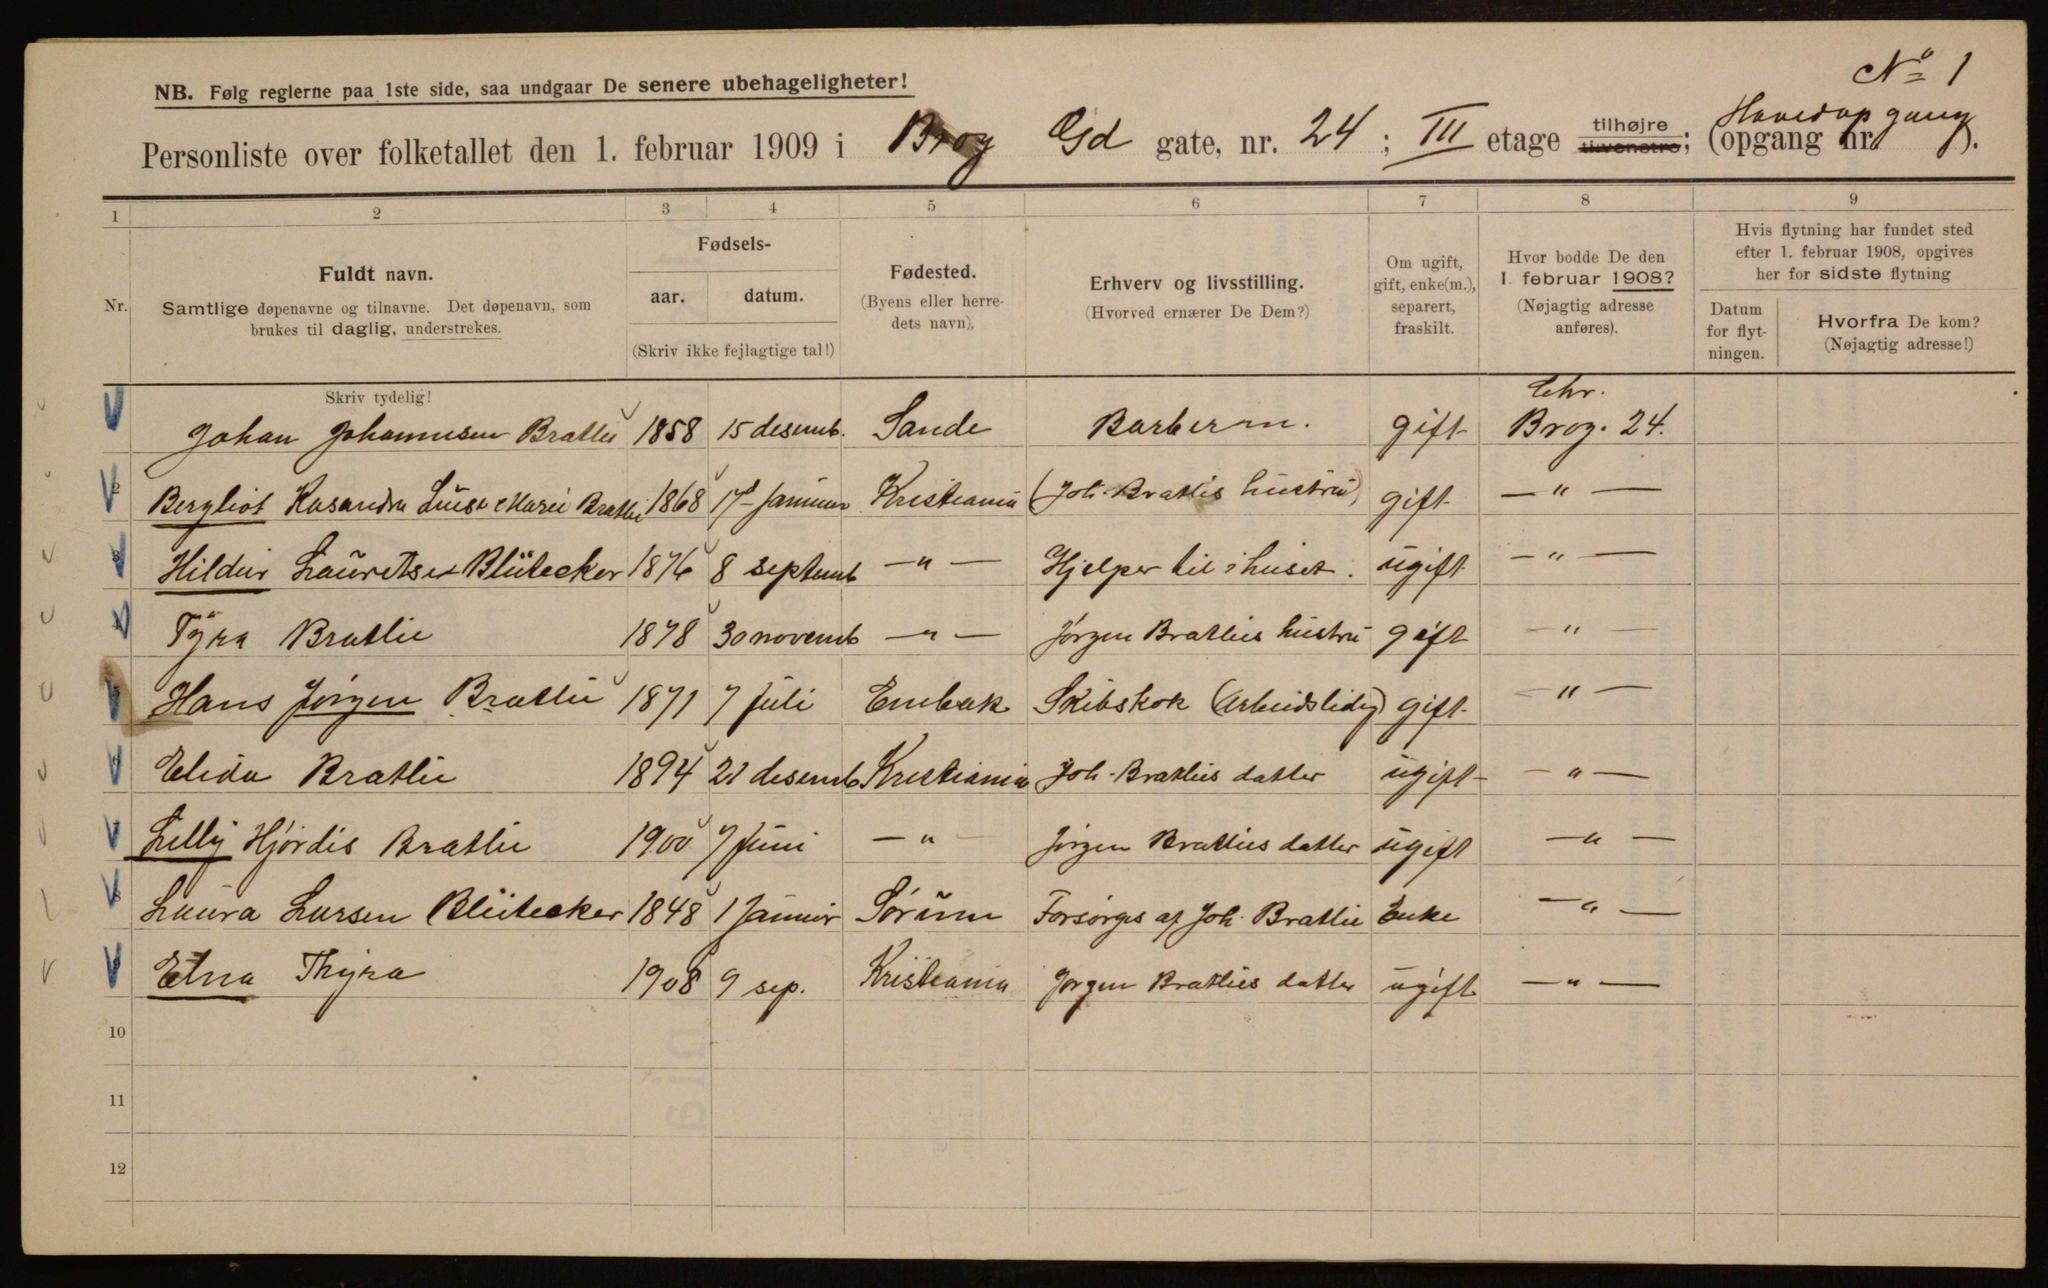 Nº 1
NB. Følg reglerne paa 1ste side, saa undgaar De senere ubehageligheter!
Personliste over folketallet den 1. februar 1909 i Brog Gd gate, nr. 24; III etage tilhøjre tilvenstre; (opgang nr. Hovedopgang).
1 2 3 4 5 6 7 8 9
Nr.
Fuldt navn.
Samtlige døpenavne og tilnavne. Det døpenavn, som
brukes til daglig, understrekes.
Fødsels-
aar. datum.
(Skriv ikke fejlagtige tal!)
Fødested.
(Byens eller herre-
dets navn).
Erhverv og livsstilling.
(Hvorved ernærer De Dem?)
Om ugift,
gift, enke(m.),
separert,
fraskilt.
Hvor bodde De den
1. februar 1908?
(Nøjagtig adresse
anføres).
Hvis flytning har fundet sted
efter 1. februar 1908, opgives
her for sidste flytning
Datum
for flyt-
ningen.
Hvorfra De kom?
(Nøjagtig adresse!)
Skriv tydelig!
Johan Johannesen Bratlie 1858 15 desemb. Sande Barberm. gift Chr. Brog. 24.
2 Bergliot Kasandra Luise Marie Bratlie 1868 17d Januar Kristiania (Joh. Bratlis hustru) gift — " —
3 Hildur Lauretse Blütecker 1876 8 septemb — " — Hjelper til i huset. ugift — " —
4 Tyra Bratlie 1878 30 novemb — " — Jørgen Bratlies hustru gift — " —
5 Hans Jørgen Bratlie 1871 7 Juli Enebak Skibskok (Arbeidsledig) gift — " —
6 Elida Bratlie 1894 21 desemb Kristiania Joh. Bratlies datter ugift — " —
7 Lilly Hjørdis Bratlie 1900 7 Juni — " — Jørgen Bratlies datter ugift — " —
8 Laura Larsen Blütecker 1848 1 Januar Sørum Forsørges af Joh. Bratlie Enke — " —
9 Etna Thyra 1908 9 sep. Kristiania Jørgen Bratlies datter ugift — " —
10
11
12